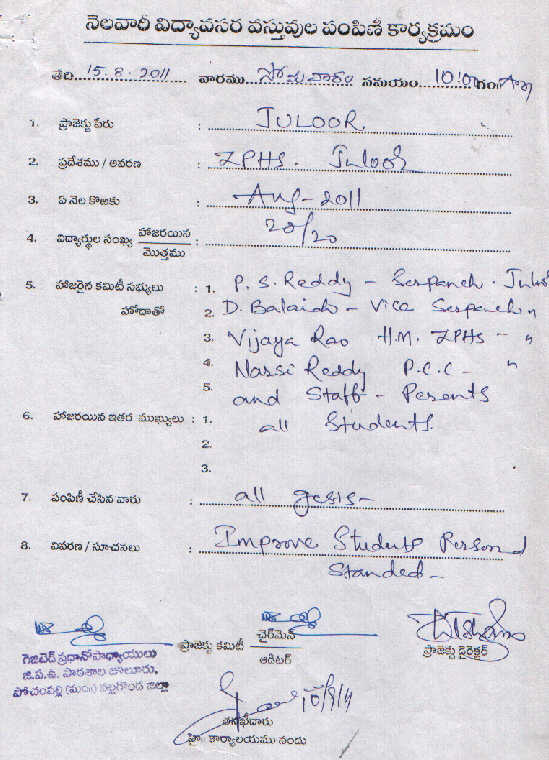 నెలవారీ విద్యావసర వస్తువుల పంపిణీ కార్యక్రమం
తేది 15.8.2011 వారము సోమవారం సమయం 10:00 గం
1. ప్రాజెక్టు పేరు : JULOOR
2. ప్రదేశము / ఆవరణ : ZPHS. Juloor
3. ఏ నెల కొఱకు : Aug-2011
4. విద్యార్థుల సంఖ్య హాజరయిన / మొత్తము : 20/20
5. హాజరైన కమిటీ సభ్యులు : 1. P. S. Reddy - Serpanch. Juloor
హోదాతో 2. D. Balaiah - Vice Serpanch "
3. Vijaya Rao H.M. ZPHS - "
4. Narsi Reddy P.C.C - "
5. and Staff - Perents
6. హాజరయిన ఇతర ముఖ్యులు : 1. all Students.
2.
3.
7. పంపిణీ చేసిన వారు : all gests-
8. వివరణ / సూచనలు : Improve Students Person
Standed-
ప్రాజెక్టు కమిటీ చైర్‌మెన్ ప్రాజెక్టు డైరెక్టర్
ఆడిటర్
గెజిటెడ్ ప్రధానోపాధ్యాయులు
జి.ప.ఉ. పాఠశాల జూలూరు,
పోచంపల్లి (మం) నల్లగొండ జిల్లా
కార్యాలయము నందు